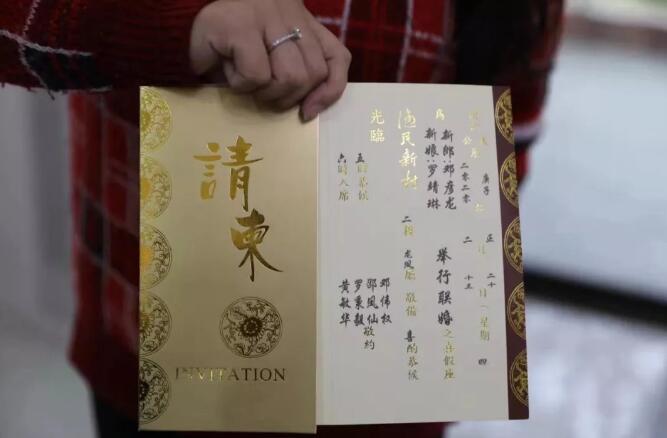 請柬
INVITATION
庚子 正月二十日(星期四
公 二零二零 二 十三
為 新郎:邓彦龙
新娘:罗靖琳
舉行联婚之喜假座
渔民新村 二楼 龙凤厅 敬備喜酌恭候
光臨
邓伟权
邵凤仙
罗秉毅
黄敏华
敬约
五時恭候
六時入席